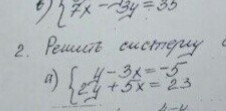 б) {7x - 3y = 35
2. Решить систему
а) { y - 3x = -5
2y + 5x = 23